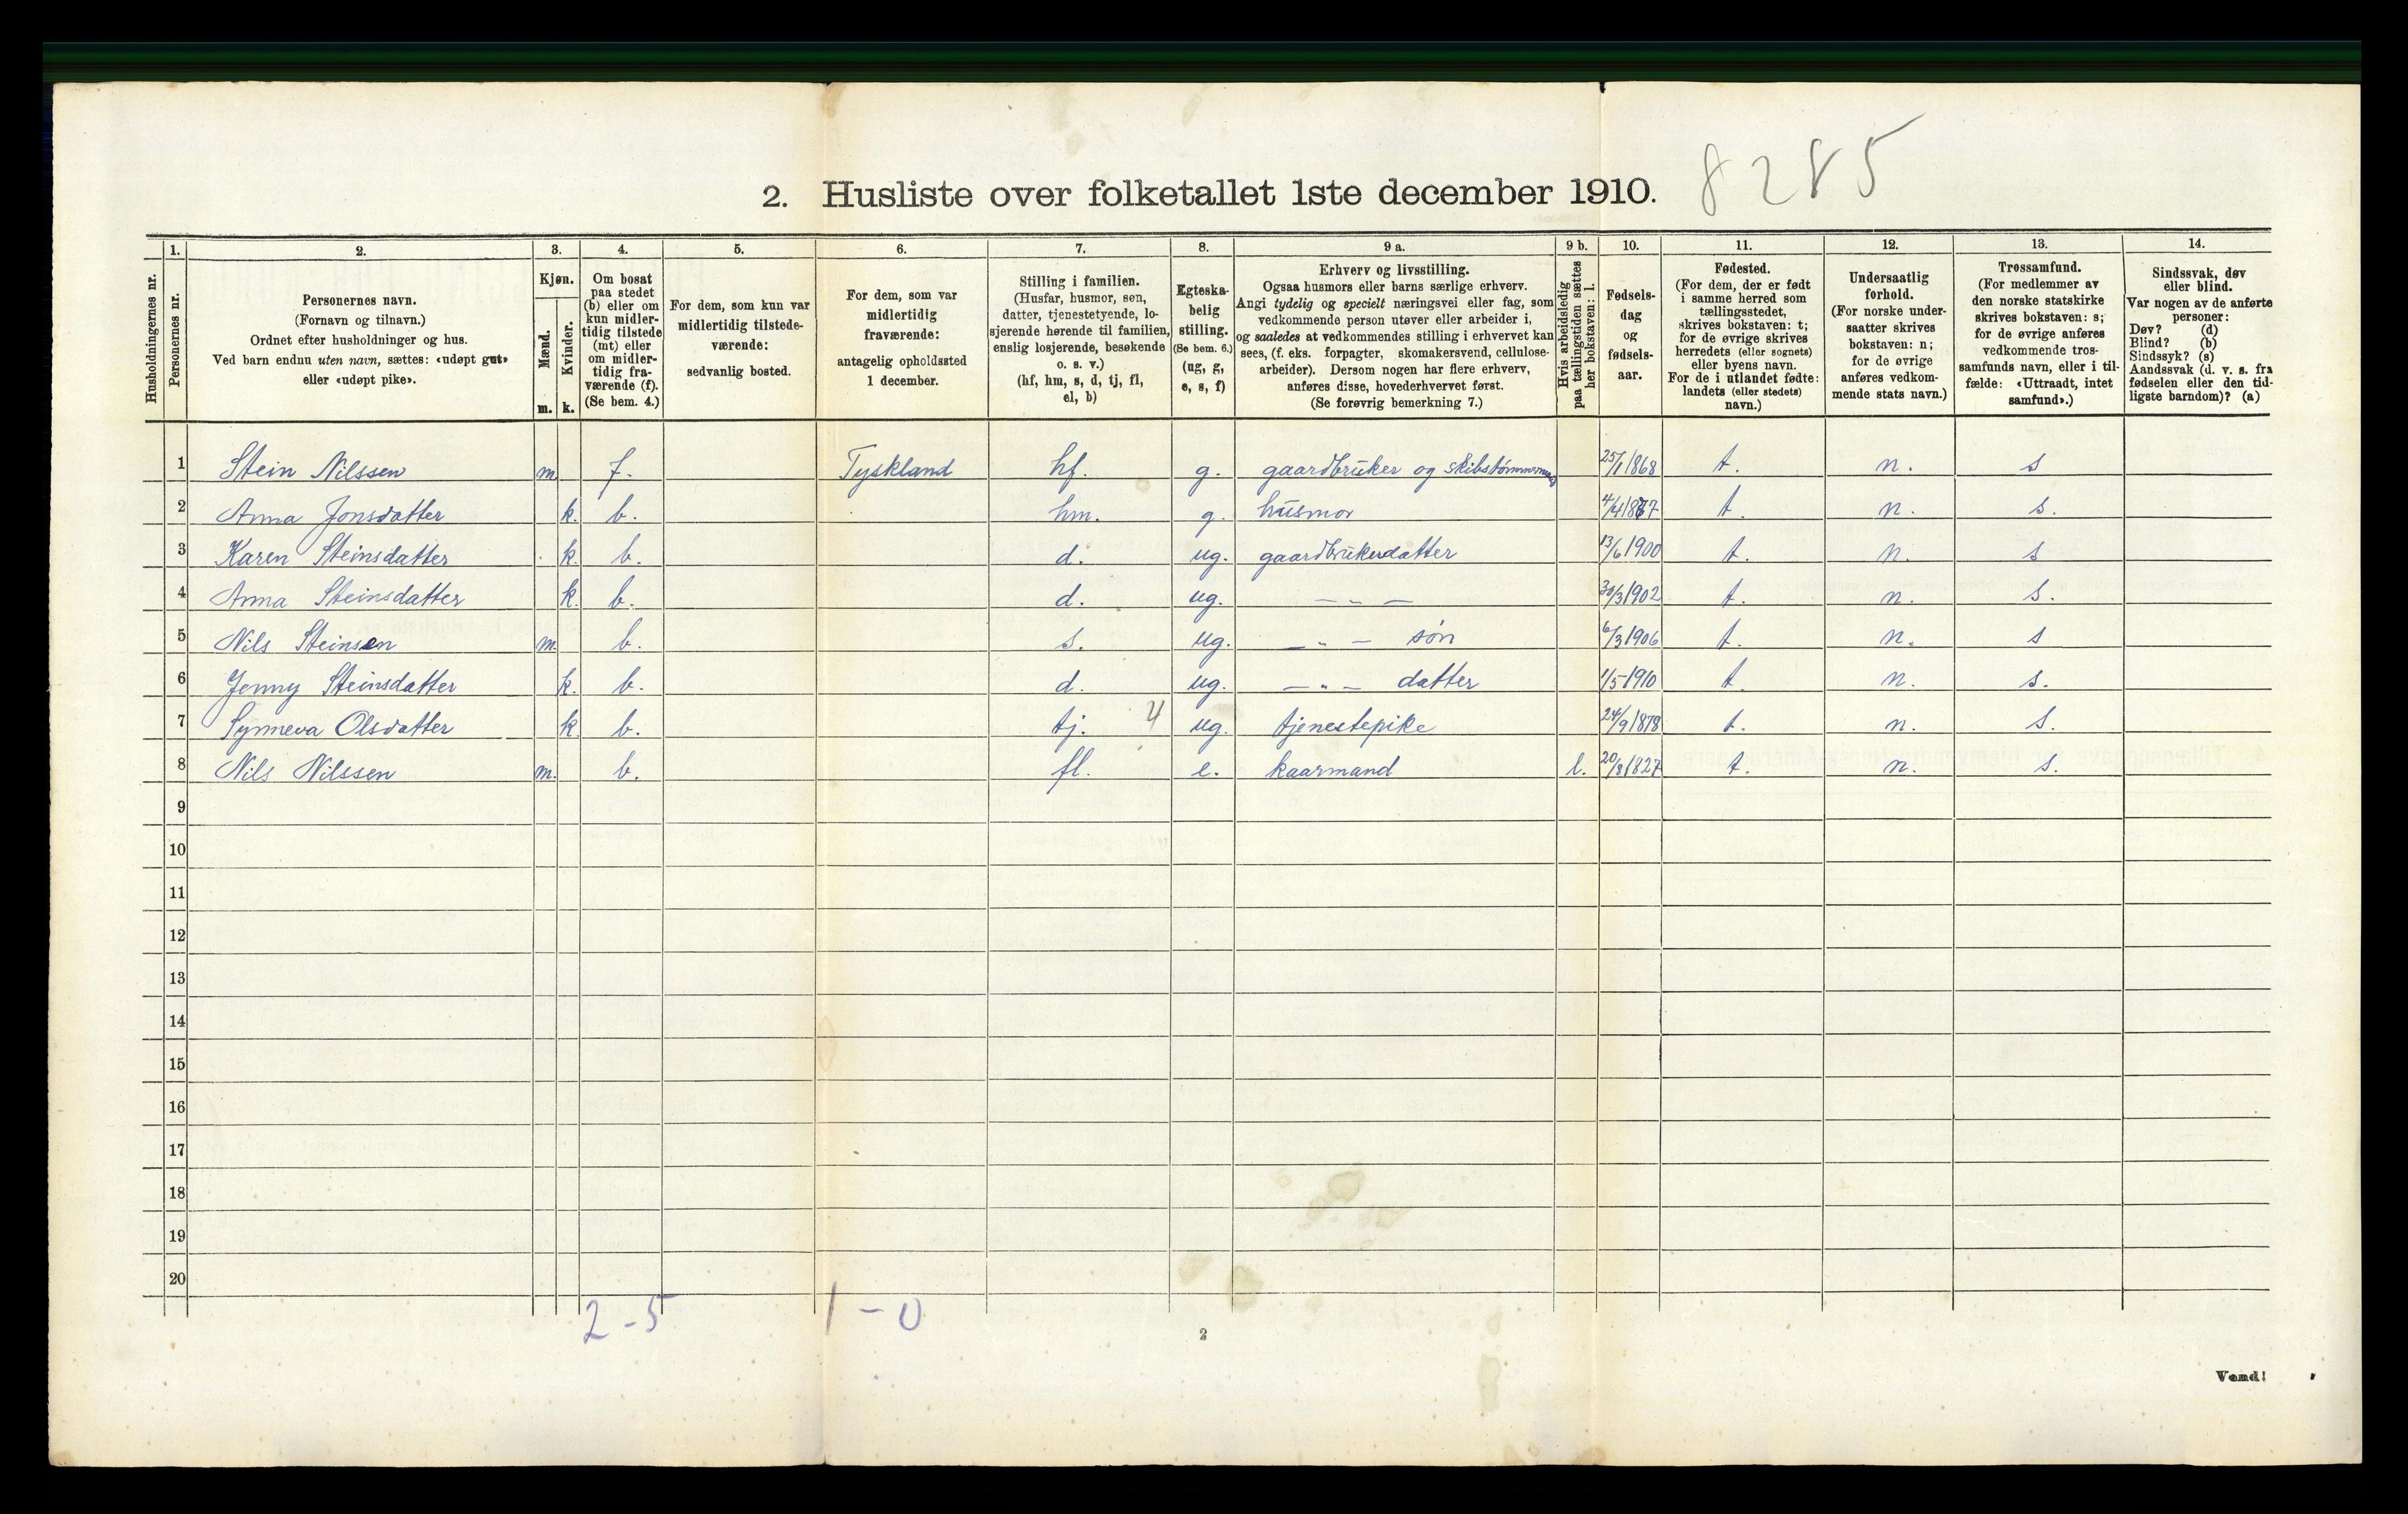 8285
2. Husliste over folketallet 1ste december 1910.
Husholdningernes nr.
1.
Personernes nr.
2.
Personernes navn.
(Fornavn og tilnavn.)
Ordnet efter husholdninger og hus.
Ved barn endnu uten navn, sættes: «udøpt gut»
eller «udøpt pike».
3.
Kjøn.
Mænd.
Kvinder.
m. k.
4.
Om bosat
paa stedet
(b) eller om
kun midler-
tidig tilstede
(mt) eller
om midler-
tidig fra-
værende (f).
(Se bem. 4.)
5.
For dem, som kun var
midlertidig tilstede-
værende:
sedvanlig bosted.
6.
For dem, som var
midlertidig
fraværende:
antagelig opholdssted
1 december.
7.
Stilling i familien.
(Husfar, husmor, søn,
datter, tjenestetyende, lo-
sjerende hørende til familien,
enslig losjerende, besøkende
o. s. v.)
(hf, hm, s, d, tj, fl,
el, b)
8.
Egteska-
belig
stilling.
(Se bem. 6.)
(ug, g,
e, s, f)
9 a.
Erhverv og livsstilling.
Ogsaa husmors eller barns særlige erhverv.
Angi tydelig og specielt næringsvei eller fag, som
vedkommende person utøver eller arbeider i,
og saaledes at vedkommendes stilling i erhvervet kan
sees, (f. eks. forpagter, skomakersvend, cellulose-
arbeider). Dersom nogen har flere erhverv,
anføres disse, hovederhvervet først.
(Se forøvrig bemerkning 7.)
9 b.
Hvis arbeidsledig
paa tællingstiden sættes
her bokstaven: l.
10.
Fødsels-
dag
og
fødsels-
aar.
11.
Fødested.
(For dem, der er født
i samme herred som
tællingsstedet,
skrives bokstaven: t;
for de øvrige skrives
herredets (eller sognets)
eller byens navn.
For de i utlandet fødte:
landets (eller stedets)
navn.)
12.
Undersaatlig
forhold.
(For norske under-
saatter skrives
bokstaven: n;
for de øvrige
anføres vedkom-
mende stats navn.)
13.
Trossamfund.
(For medlemmer av
den norske statskirke
skrives bokstaven: s;
for de øvrige anføres
vedkommende tros-
samfunds navn, eller i til-
fælde: «Uttraadt, intet
samfund».)
14.
Sindssvak, døv
eller blind.
Var nogen av de anførte
personer:
Døv? (d)
Blind? (b)
Sindssyk? (s)
Aandssvak (d. v. s. fra
fødselen eller den tid-
ligste barndom)? (a)
1 Stein Nilssen m. f. Tyskland hf. g. gaardbruker og skibstømmermand 25/1 1868 t. n. s
2 Anna Jonsdatter k. b. hm. g. husmor 4/4 1867 t. n. s.
3 Karen Steinsdatter k. b. d. ug. gaardbrukerdatter 13/6 1900 t. n. s
4 Anna Steinsdatter k. b. d. ug. — „ — 30/3 1902 t. n. s.
5 Nils Steinsen m. b. s. ug. — „ — søn 6/3 1906 t. n. s
6 Jenny Steinsdatter k. b. d. ug. — „ — datter 1/5 1910 t. n. s.
7 Synneva Olsdatter k. b. tj. 4 ug. tjenestepike 24/9 1878 t. n. s.
8 Nils Nilssen m. b. fl. e. kaarmand l. 20/8 1827 t. n. s.
9
10
11
12
13
14
15
16
17
18
19
20
2 - 5 1 - 0
2
Vend!